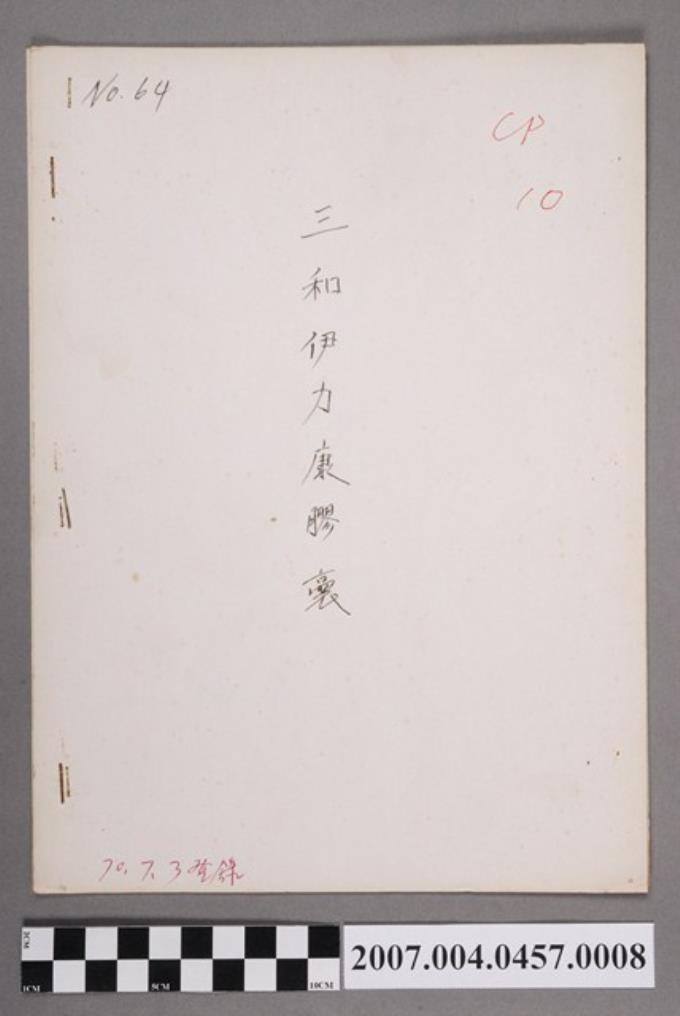 No. 64
CP
10
三和伊力康膠囊
70.7.3登錄
3CM
1CM
5CM
10CM
2007.004.0457.0008